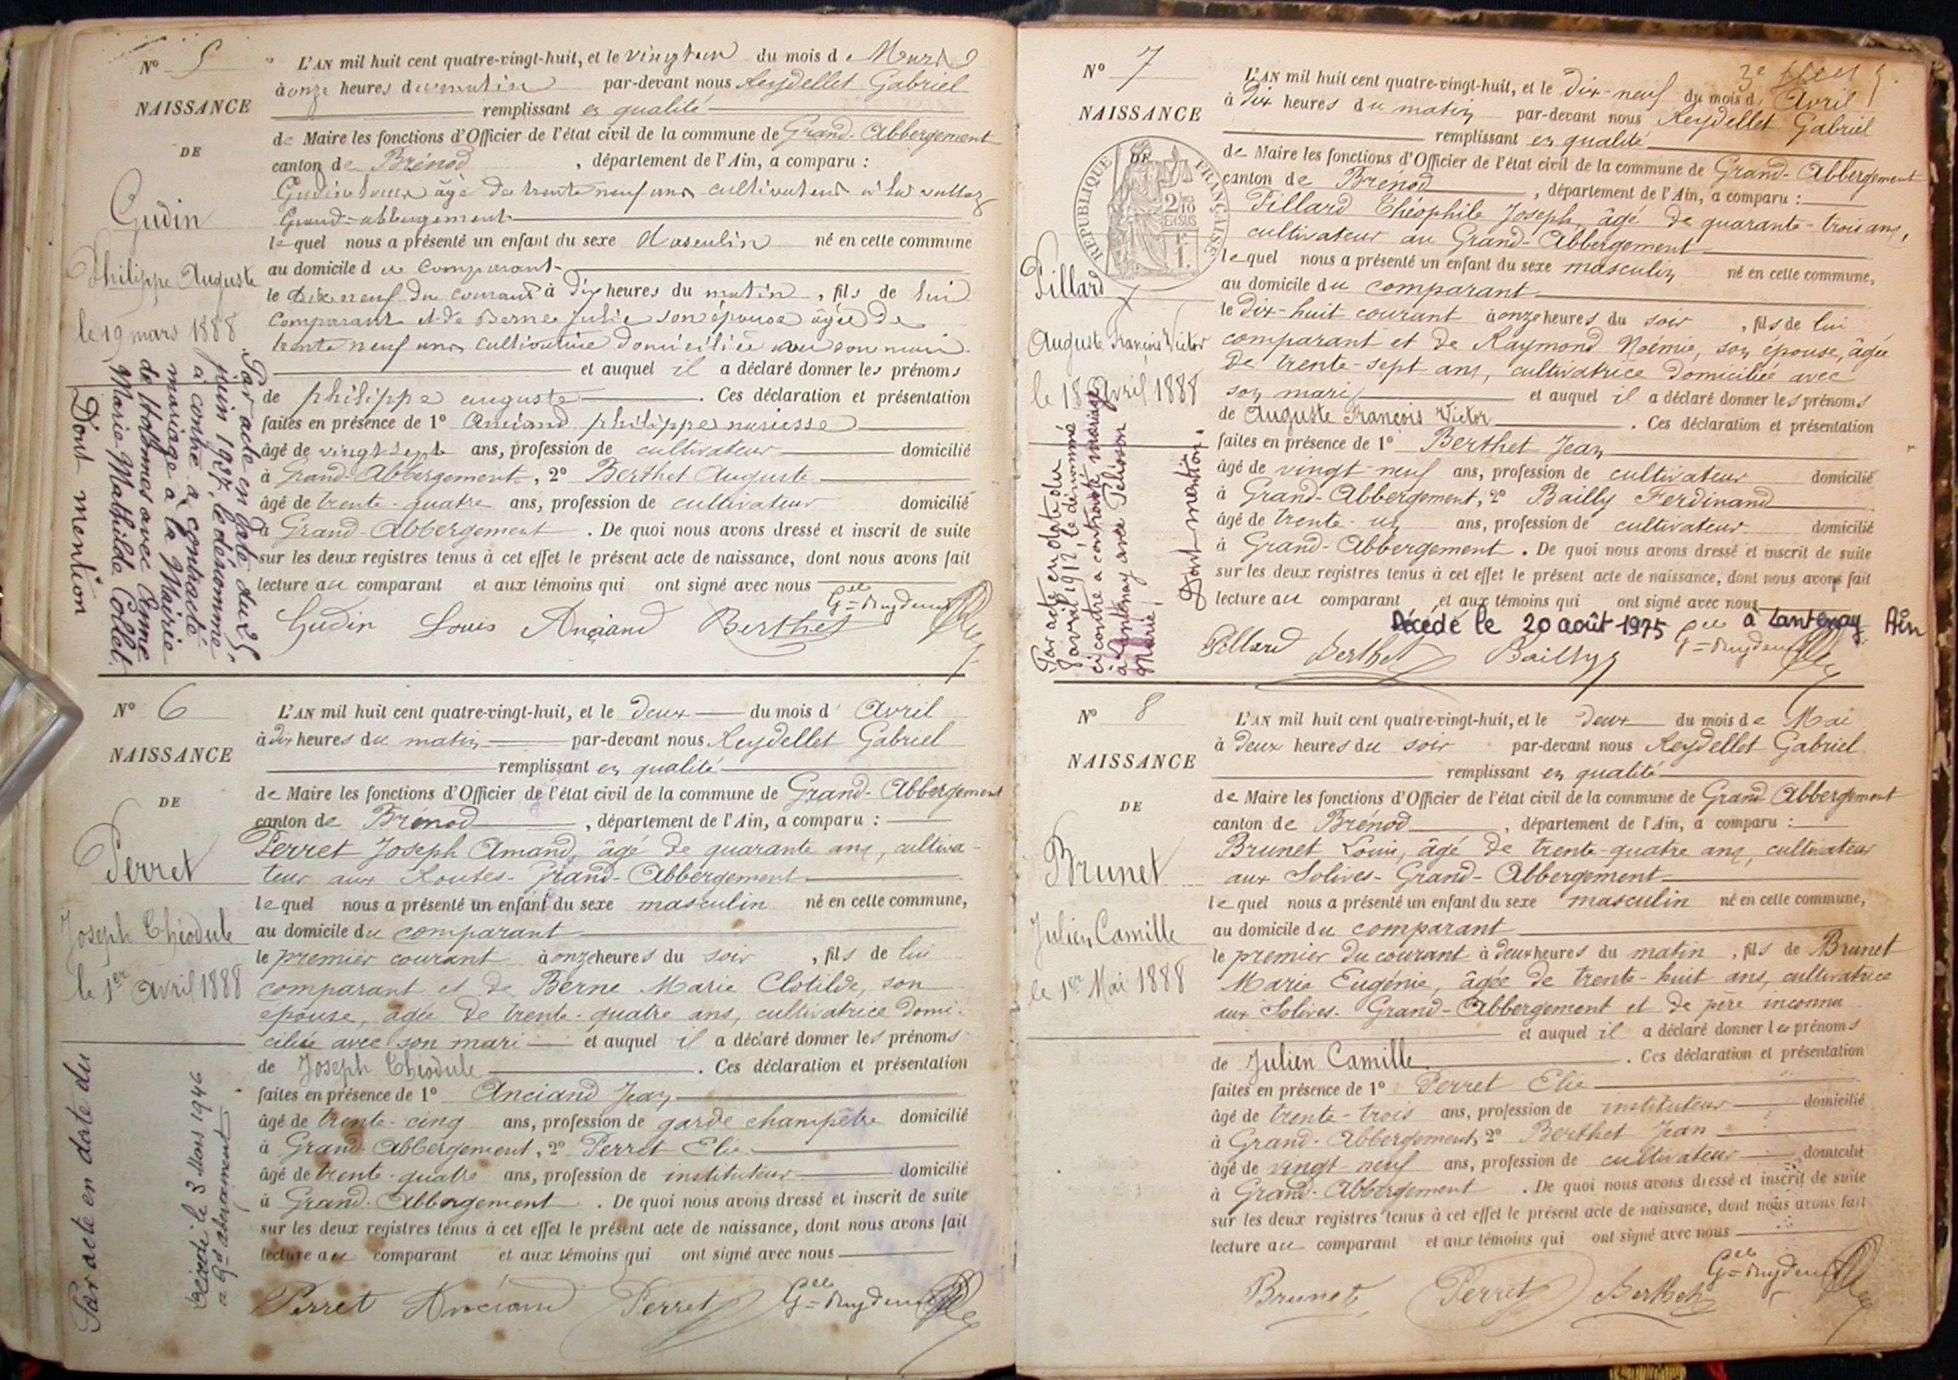 N° 5
NAISSANCE
DE
Gudin
Philippe Auguste
le 19 mars 1888
Par acte en date du 25
juin 1927, le dénommé
ci contre a contracté
mariage à la Mairie
de Hotonnes avec Anne
Marie Mathilde Collet
Dont mention
L'AN mil huit cent quatre-vingt-huit, et le vingt un du mois de Mars
à onze heures du matin par-devant nous Reydellet Gabriel
remplissant en qualité
de Maire les fonctions d'Officier de l'état civil de la commune de Grand-Abbergement
canton de Brénod , département de l'Ain, a comparu :
Gudin Louis âgé de trente neuf ans cultivateur à la
Grand-abbergement
lequel nous a présenté un enfant du sexe Masculin né en cette commune
au domicile du comparant
le dix neuf du courant à dix heures du matin , fils de lui
comparant et de Berne Julie son épouse âgée de
trente neuf ans cultivatrice domiciliée avec son mari
et auquel il a déclaré donner les prénoms
de philippe auguste . Ces déclaration et présentation
faites en présence de 1° Anciand philippe
âgé de vingt sept ans, profession de cultivateur domicilié
à Grand-Abbergement, 2° Berthet Auguste
âgé de trente-quatre ans, profession de cultivateur domicilié
à Grand-Abbergement . De quoi nous avons dressé et inscrit de suite
sur les deux registres tenus à cet effet le présent acte de naissance, dont nous avons fait
lecture au comparant et aux témoins qui ont signé avec nous
Gudin Louis Anciand Berthet
N° 6
NAISSANCE
DE
Perret
Joseph Théodule
le 1er Avril 1888
Par acte en date du
Décédé le 3 Mars 1946
a Gd abergement
L'AN mil huit cent quatre-vingt-huit, et le deux du mois d'Avril
à dix heures du matin par-devant nous Reydellet Gabriel
remplissant en qualité
de Maire les fonctions d'Officier de l'état civil de la commune de Grand-Abbergement
canton de Brénod , département de l'Ain, a comparu :
Perret Joseph Amand, âgé de quarante ans, cultiva-
teur aux Routes-Grand-Abbergement
lequel nous a présenté un enfant du sexe masculin né en cette commune,
au domicile du comparant
le premier courant à onze heures du soir , fils de lui
comparant et de Berne Marie Clotilde, son
épouse, âgée de trente-quatre ans, cultivatrice domi-
ciliée avec son mari et auquel il a déclaré donner les prénoms
de Joseph Théodule . Ces déclaration et présentation
faites en présence de 1° Anciand Jean
âgé de trente-cinq ans, profession de garde champêtre domicilié
à Grand-Abbergement, 2° Perret Elie
âgé de trente-quatre ans, profession de instituteur domicilié
à Grand-Abbergement . De quoi nous avons dressé et inscrit de suite
sur les deux registres tenus à cet effet le présent acte de naissance, dont nous avons fait
lecture au comparant et aux témoins qui ont signé avec nous
Perret Anciand Perret
N° 7
NAISSANCE
DE
RÉPUBLIQUE FRANÇAISE
Pillard
Auguste François Victor
le 18 Avril 1888
Par acte en date du
avril 1912, le dénommé
ci contre a contracté mariage
à Lantenay avec Pélisson
Marie
Dont mention.
L'AN mil huit cent quatre-vingt-huit, et le dix-neuf du mois d'Avril
à dix heures du matin par-devant nous Reydellet Gabriel
remplissant en qualité
de Maire les fonctions d'Officier de l'état civil de la commune de Grand-Abbergement
canton de Brénod , département de l'Ain, a comparu :
Pillard Théophile Joseph, âgé de quarante-trois ans,
cultivateur au Grand-Abbergement
lequel nous a présenté un enfant du sexe masculin né en cette commune,
au domicile du comparant
le dix-huit courant à onze heures du soir , fils de lui
comparant et de Raymond Noémie, son épouse, âgée
de trente-sept ans, cultivatrice domiciliée avec
son mari et auquel il a déclaré donner les prénoms
de Auguste François Victor . Ces déclaration et présentation
faites en présence de 1° Berthet Jean
âgé de vingt-neuf ans, profession de cultivateur domicilié
à Grand-Abbergement, 2° Bailly Ferdinand
âgé de trente-un ans, profession de cultivateur domicilié
à Grand-Abbergement . De quoi nous avons dressé et inscrit de suite
sur les deux registres tenus à cet effet le présent acte de naissance, dont nous avons fait
lecture au comparant et aux témoins qui ont signé avec nous
Décédé le 20 août 1975 à Lantenay Ain
Pillard Berthet Bailly
N° 8
NAISSANCE
DE
Brunet
Julien Camille
le 1er Mai 1888
L'AN mil huit cent quatre-vingt-huit, et le deux du mois de Mai
à deux heures du soir par-devant nous Reydellet Gabriel
remplissant en qualité
de Maire les fonctions d'Officier de l'état civil de la commune de Grand Abbergement
canton de Brénod , département de l'Ain, a comparu :
Brunet Louis, âgé de trente-quatre ans, cultivateur
aux Solives-Grand-Abbergement
lequel nous a présenté un enfant du sexe masculin né en cette commune,
au domicile du comparant
le premier du courant à deux heures du matin , fils de Brunet
Marie Eugénie, âgée de trente-huit ans, cultivatrice
aux Solives-Grand-Abbergement et de père inconnu
et auquel il a déclaré donner les prénoms
de Julien Camille . Ces déclaration et présentation
faites en présence de 1° Perret Elie
âgé de trente-trois ans, profession de instituteur domicilié
à Grand-Abbergement, 2° Berthet Jean
âgé de vingt-neuf ans, profession de cultivateur domicilié
à Grand-Abbergement . De quoi nous avons dressé et inscrit de suite
sur les deux registres tenus à cet effet le présent acte de naissance, dont nous avons fait
lecture au comparant et aux témoins qui ont signé avec nous
Brunet Perret Berthet